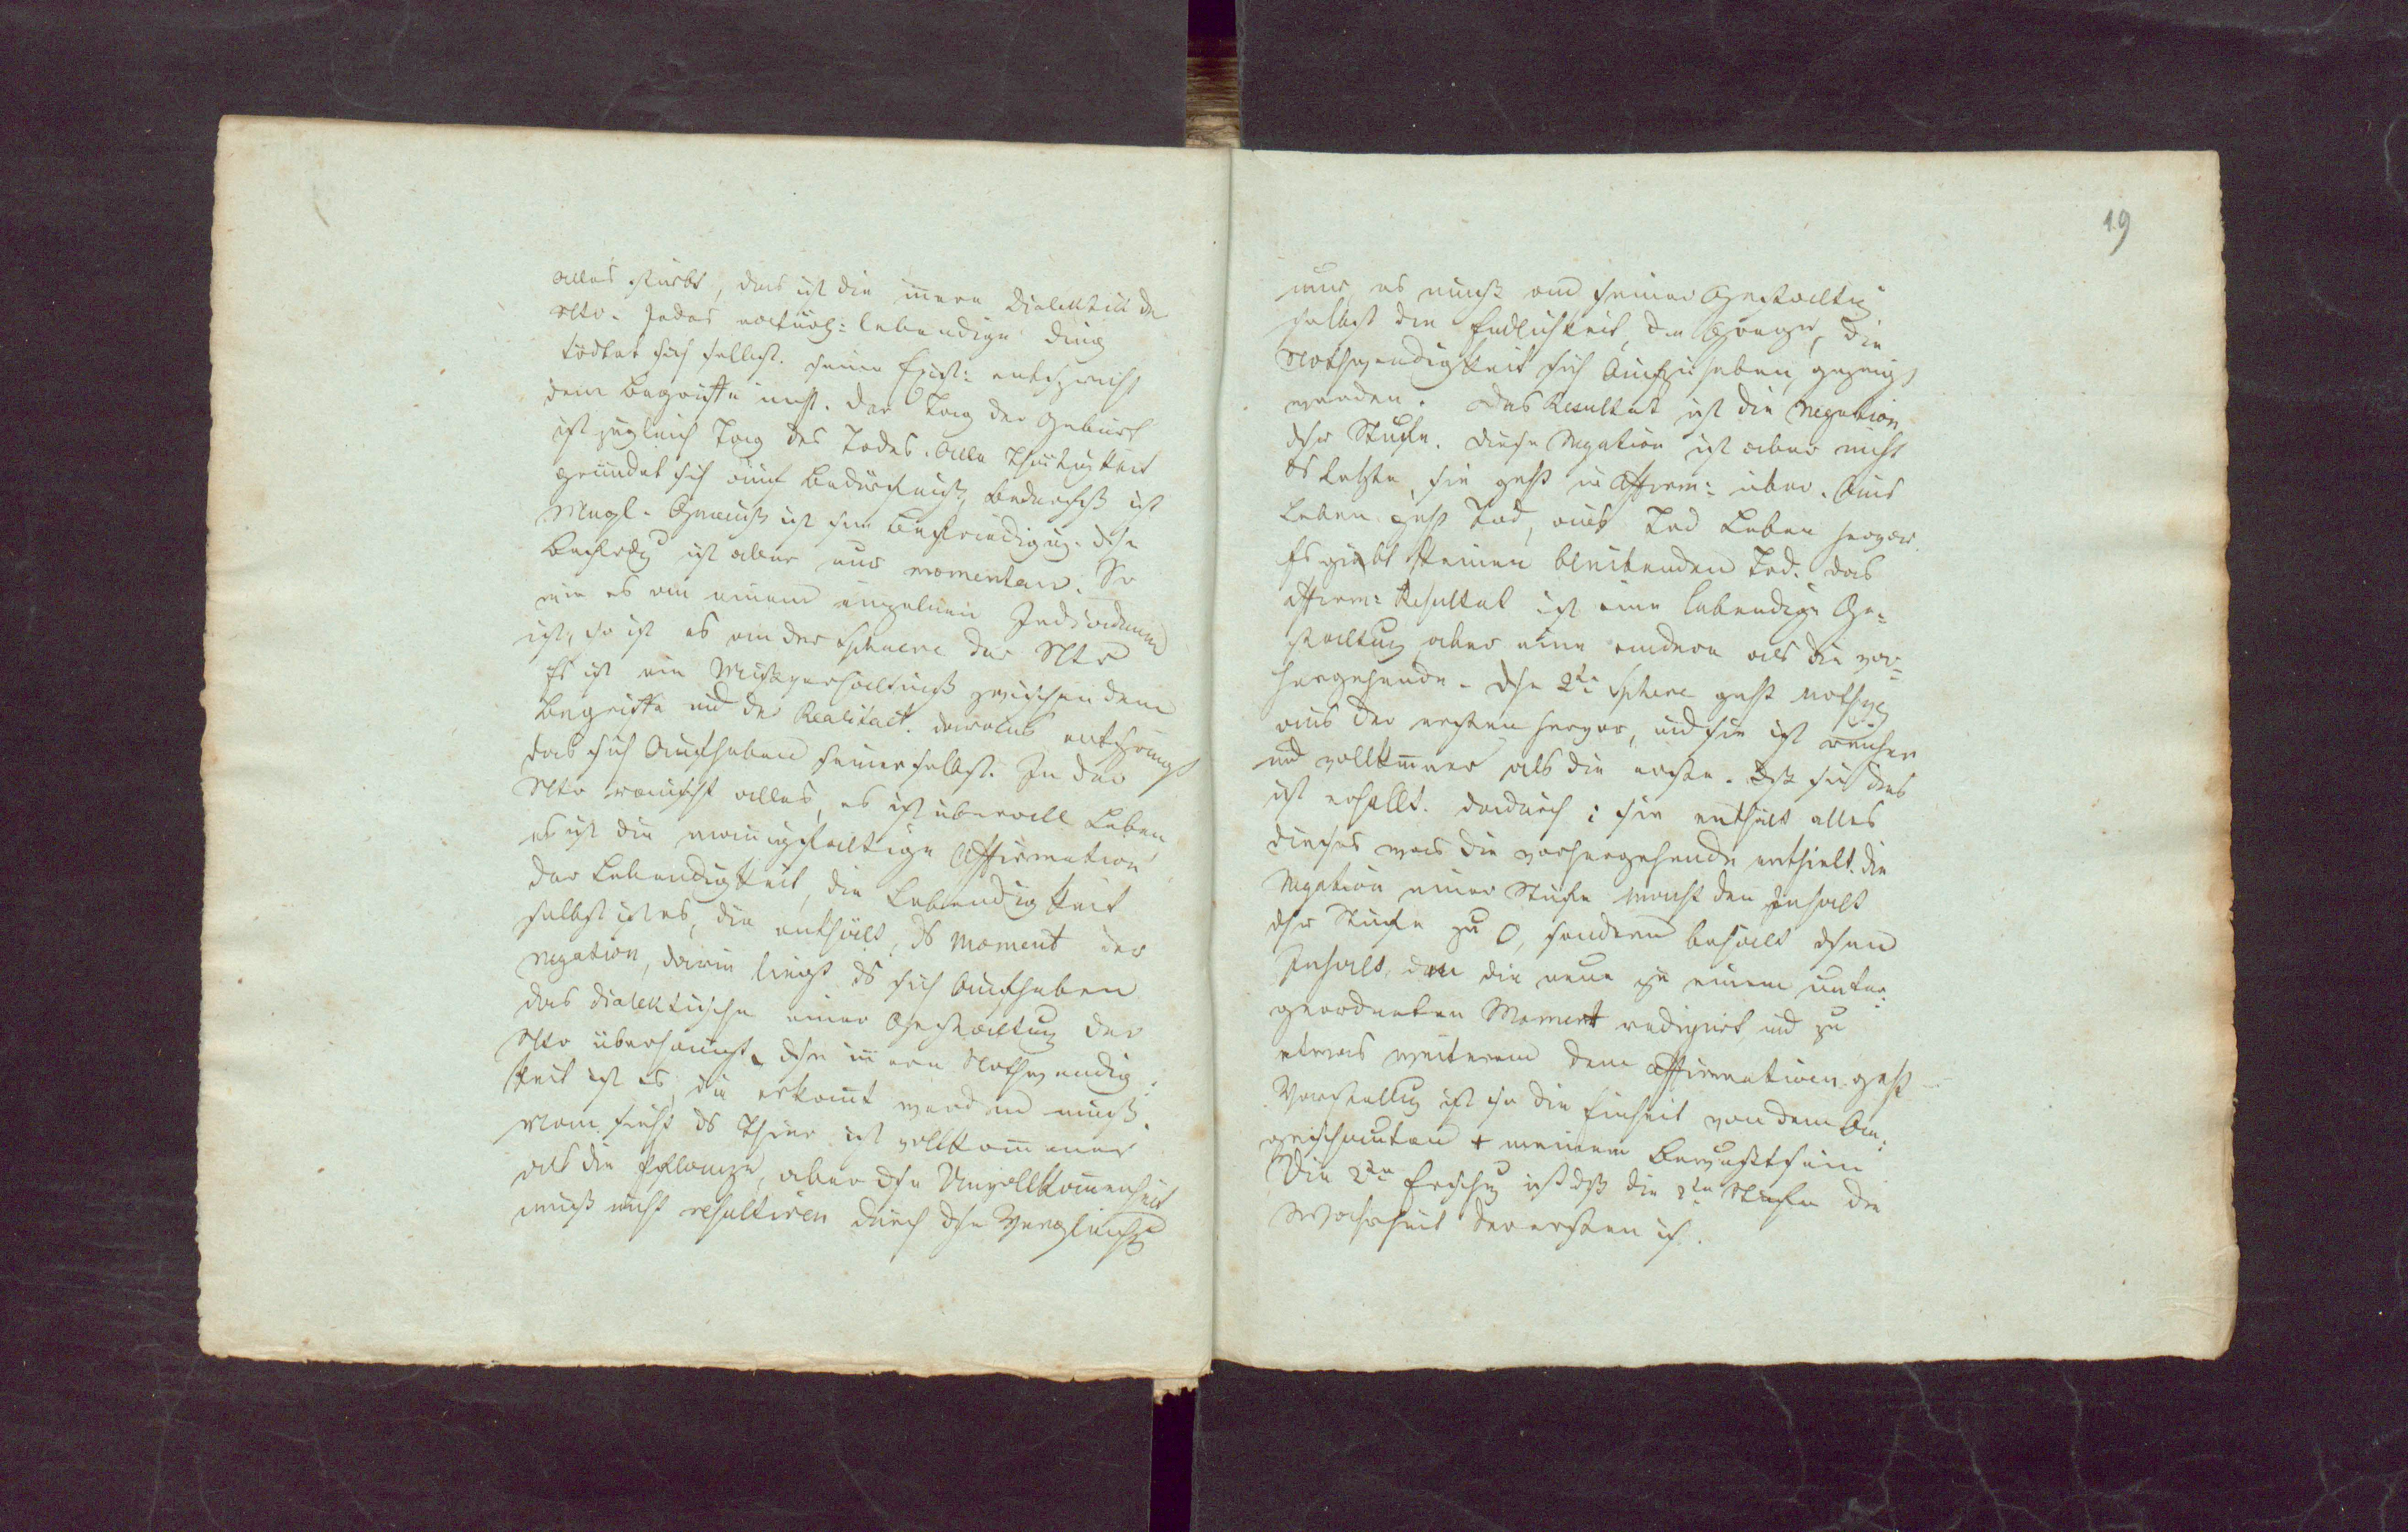 alles stirbt, das ist die innere Dialektik der
Ntr. Jedes natürl: lebendige Ding
tödtet sich selbst. seine Exist: entspricht
dem Begriffe nicht. Der Tag der Geburt
ist zugleich Tag des Todes. Alle Thätigkeit
gründet sich auf Bedürfniß, Bedürfniß ist
Mangl. Genuß ist sein Befriedigung. Dse
ist aber nur momentan. So
wie es an einem einzelnen Individuum
ist, so ist es an der Sphaere der Ntr
Es ist ein Mißverhältniß zwischen dem
Begriffe und der Realitaet. daraus entspringt
das sich Aufheben seiner selbst. In der
Ntr rauscht alles, es ist überall Leben,
es ist die mannigfaltige Affirmation
der Lebendigkeit, die Lebendigkeit
selbst ist es, die enthält, ds Moment der
Negation, darin liegt ds sich Aufheben
das dialektische einer Gestaltung der
Ntr überhaupt. Dse innere Nothwendig-
keit ist es, die erkannt werden muß.
Man sieht ds Thier ist vollkommner
als die Pflanze, aber dse Unvollkommenheit
muß nicht resultiren durch dse Vergleichg
19
nur, es muß an seiner Gestaltung
selbst die Endlichkeit, die Grenze, die
Nothwendigkeit sich Aufzuheben, gezeigt
werden. Das Resultat ist die Negation
dsr Stufe. Diese Negation ist aber nicht
ds Letzte, sie geht in Affirm: über. Aus
Leben geht Tod, aus Tod Leben hervor.
Es giebt keinen bleibenden Tod. das
affirm: Resultat ist eine lebendige Ge-
staltung aber eine andere als die vor-
hergehende. Dse 2te Sphere geht nothwg
aus der ersten hervor, und sie ist reicher
und vollkommner als die erste. Dß sie dies
ist erhellt dadurch: sie enthält alles
dieses was die vorhergehende enthielt. die
Negation einer Stufe macht den Inhalt
dsr Stufe zu 0, sondern behält dsen
Inhalt, den die neue zu einem unter-
geordneten Moment redigirt und zu
etwas weiterem dem affirmativen geht
Vorstellung ist so die Einheit von dem An-
geschauten + meinem Bewußtsein
Die 2te ist dß die 2te Stufe die
Wahrheit der ersten ist.